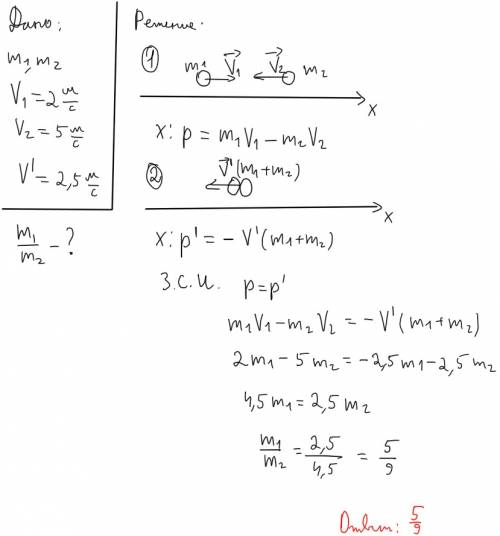 Дано:
m₁, m₂
V₁ = 2 м/с
V₂ = 5 м/с
V' = 2,5 м/с
m₁/m₂ - ?
Решение.
① m₁ V₁ V₂ m₂
x
x: p = m₁V₁ - m₂V₂
② V' (m₁+m₂)
x
x: p' = - V'(m₁+m₂)
З.С.И. p = p'
m₁V₁ - m₂V₂ = - V'(m₁+m₂)
2m₁ - 5m₂ = -2,5m₁ - 2,5m₂
4,5m₁ = 2,5m₂
m₁/m₂ = 2,5/4,5 = 5/9
Ответ: 5/9